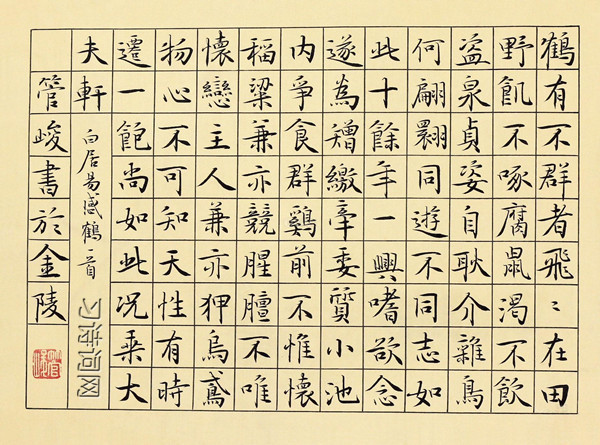 鶴有不群者飛〻在田
野飢不啄腐鼠渴不飲
盗泉貞姿自耿介雜鳥
何翩翾同遊不同志如
此十餘年一興嗜欲念
遂為矰繳牽委質小池
内爭食群鷄前不惟懷
稻粱兼亦競腥膻不唯
懷戀主人兼亦狎烏鳶
物心不可知天性有時
遷一飽尚如此况乘大
夫軒
白居易感鶴一首
管峻書於金陵
习诗词网